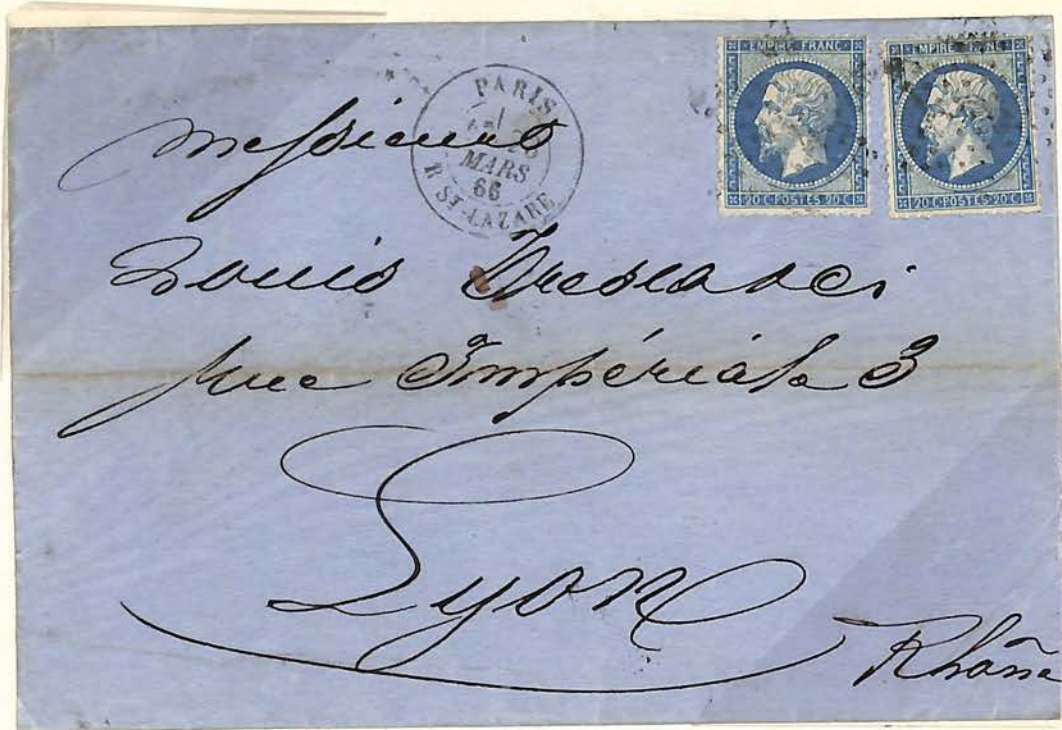 EMPIRE FRANC
EMPIRE FRANC
20 C · POSTES · 20 C
20 C · POSTES · 20 C
PARIS
MARS
66
R ST-LAZARE
Messieurs
Louis
rue Impériale 3
Lyon
Rhône